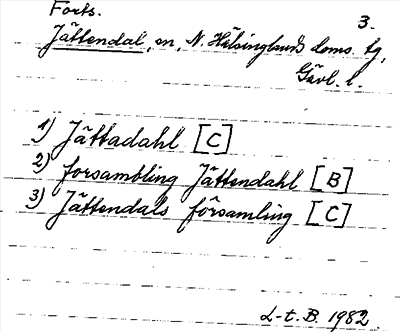 Forts. 3.
Jättendal, sn, N. Hälsinglands doms. tg,
Gävl. l.
1) Jättadahl [C]
2) forsambling Jättendahl [B]
3) Jättendals församling [C]
L-t. B. 1982.